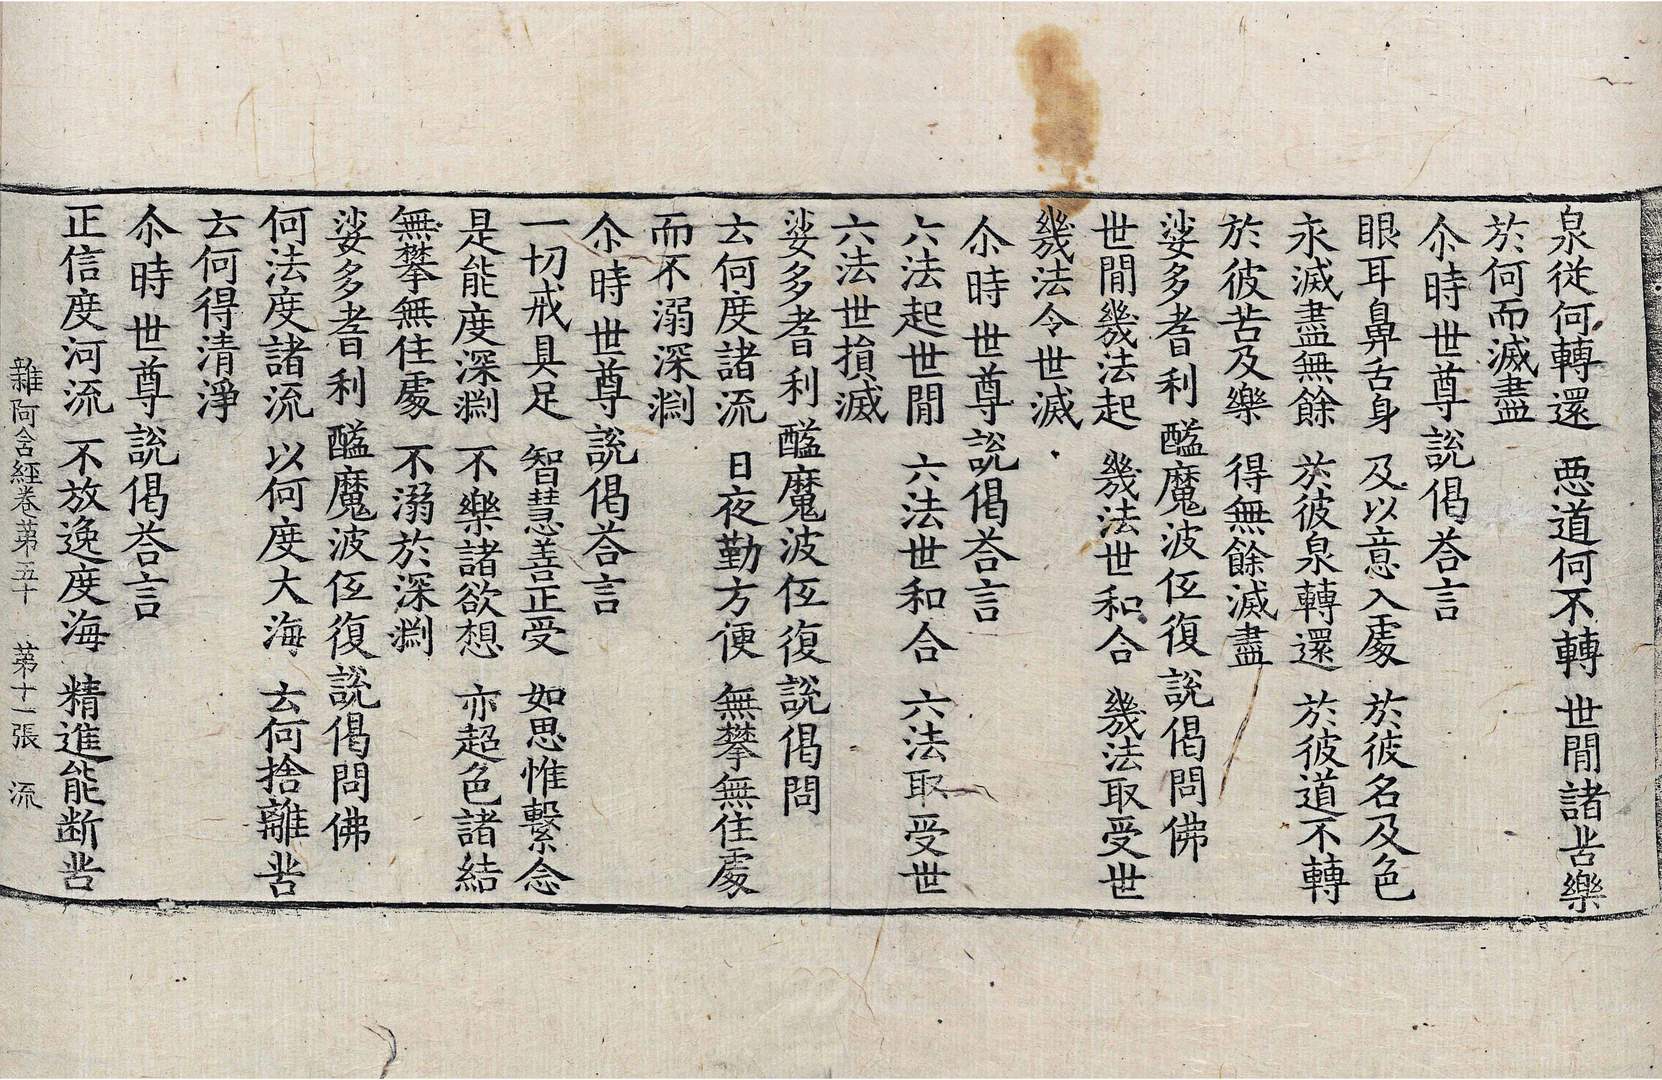 泉從何轉還 惡道何不轉 世間諸苦樂
於何而滅盡
尒時世尊說偈荅言
眼耳鼻舌身 及以意入處 於彼名及色
永滅盡無餘 於彼泉轉還 於彼道不轉
於彼苦及樂 得無餘滅盡
娑多耆利醯魔波伭復說偈問佛
世間幾法起 幾法世和合 幾法取受世
幾法令世滅
尒時世尊說偈荅言
六法起世間 六法世和合 六法取受世
六法世損滅
娑多耆利醯魔波伭復說偈問
云何度諸流 日夜勤方便 無攀無住處
而不溺深淵
尒時世尊說偈荅言
一切戒具足 智慧善正受 如思惟繫念
是能度深淵 不樂諸欲想 亦超色諸結
無攀無住處 不溺於深淵
娑多耆利醯魔波伭復說偈問佛
何法度諸流 以何度大海 云何捨離苦
云何得清淨
尒時世尊說偈荅言
正信度河流 不放逸度海 精進能断苦
雜阿含經卷第五十 第十一張 流